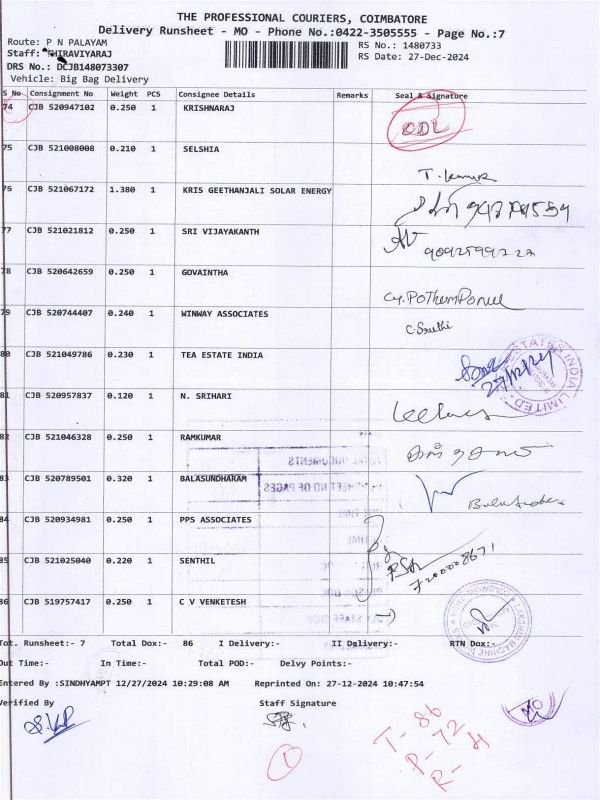 THE PROFESSIONAL COURIERS, COIMBATORE
Delivery Runsheet - MO - Phone No.:0422-3505555 - Page No.:7
Route: P N PALAYAM
RS No.: 1480733
Staff: THIRAVIYARAJ
RS Date: 27-Dec-2024
DRS No.: DCJB148073307
Vehicle: Big Bag Delivery
S No Consignment No Weight PCS Consignee Details Remarks Seal & Signature
74 CJB 520947102 0.250 1 KRISHNARAJ
ODL
75 CJB 521008008 0.210 1 SELSHIA
T. Kumar
76 CJB 521067172 1.380 1 KRIS GEETHANJALI SOLAR ENERGY
77 CJB 521021812 0.250 1 SRI VIJAYAKANTH
9092599227
78 CJB 520642659 0.250 1 GOVAINTHA
79 CJB 520744407 0.240 1 WINWAY ASSOCIATES
80 CJB 521049786 0.230 1 TEA ESTATE INDIA
ESTATES INDIA LIMITED
27/12/24
81 CJB 520957837 0.120 1 N. SRIHARI
82 CJB 521046328 0.250 1 RAMKUMAR
83 CJB 520789501 0.320 1 BALASUNDHARAM
84 CJB 520934981 0.250 1 PPS ASSOCIATES
85 CJB 521025040 0.220 1 SENTHIL
7200008671
86 CJB 519757417 0.250 1 C V VENKETESH
LAKSHMI MACHINE
Tot. Runsheet:- 7 Total Dox:- 86 I Delivery:- II Delivery:- RTN Dox:-
Out Time:- In Time:- Total POD:- Delvy Points:-
Entered By :SINDHYAMPT 12/27/2024 10:29:08 AM Reprinted On: 27-12-2024 10:47:54
Verified By Staff Signature
MO
1
T- 86
P- 72
R-